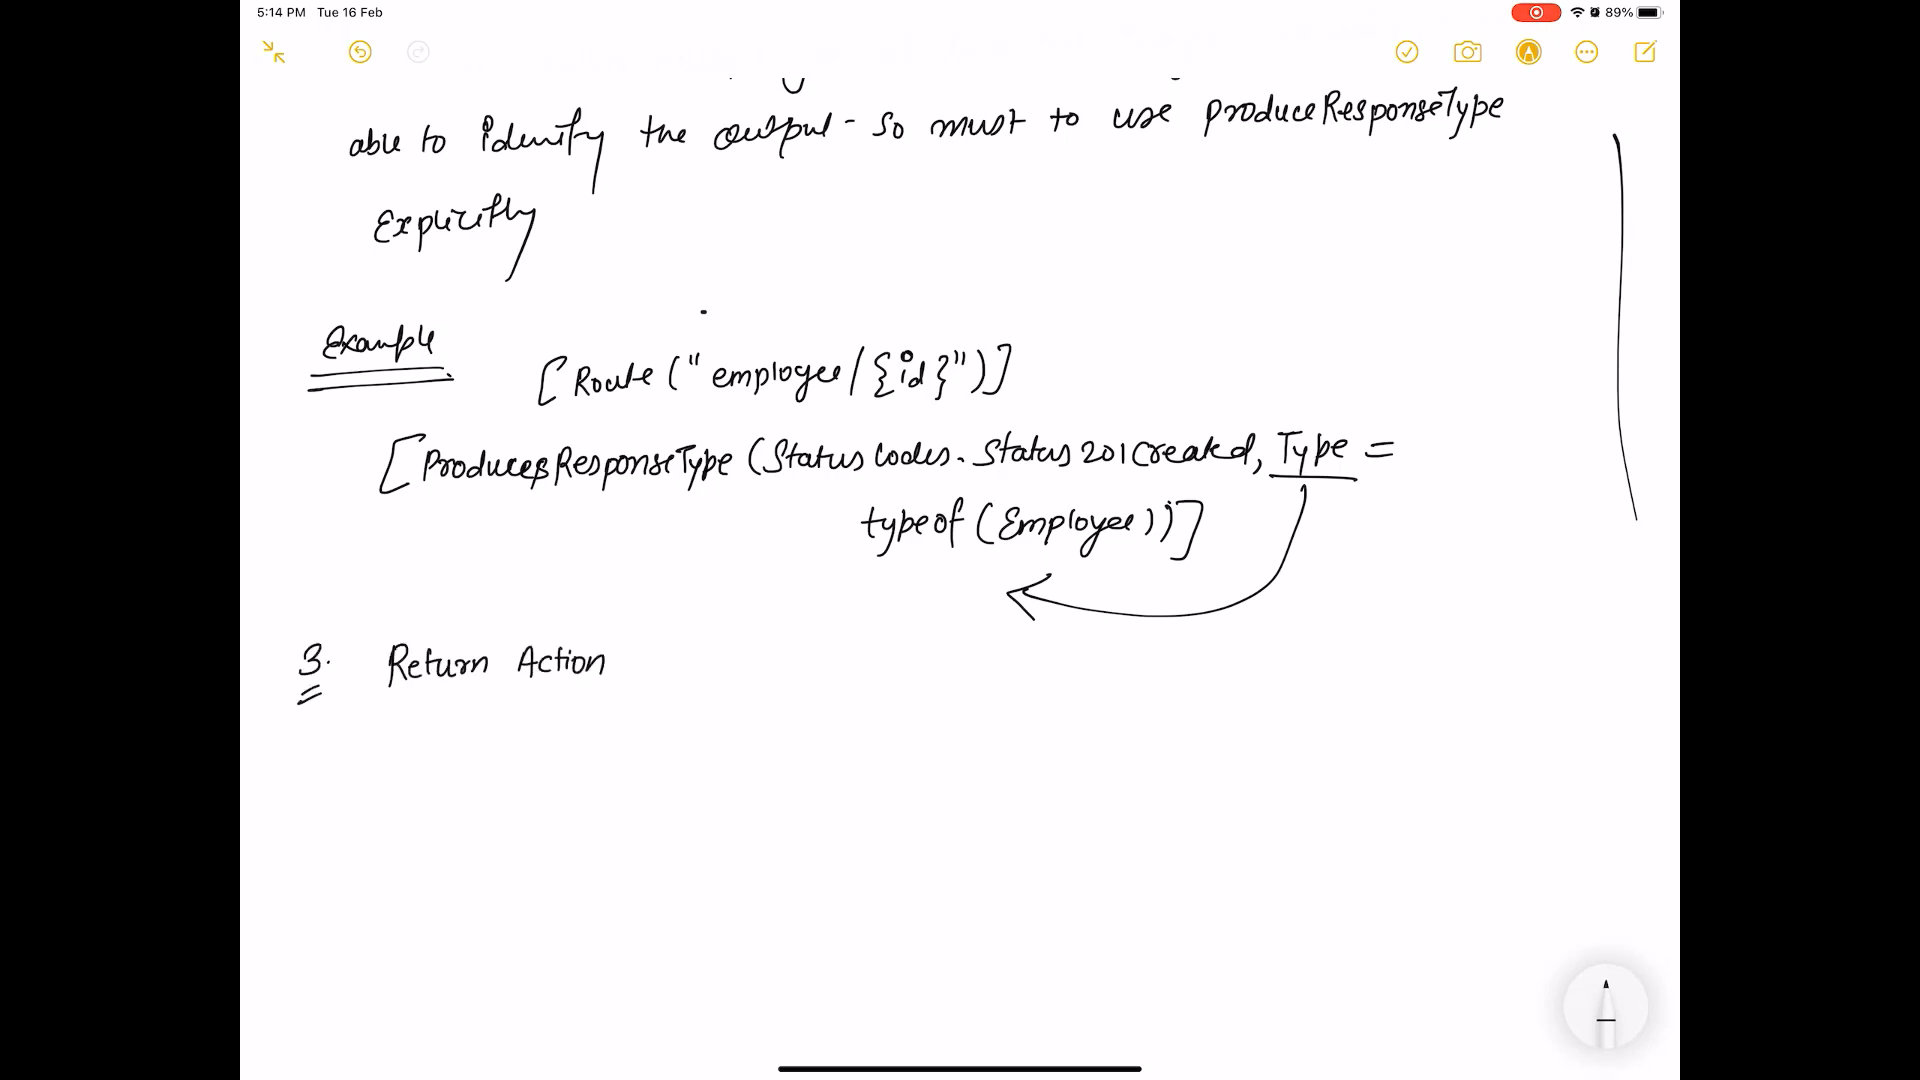 5:14 PM Tue 16 Feb
89%
able to identify the output - so must to use produceResponseType
Explicitly
Example
[Route("employee/{id}")]
[ProducesResponseType(StatusCodes.Status201Created, Type =
typeof(Employee))]
3. Return Action